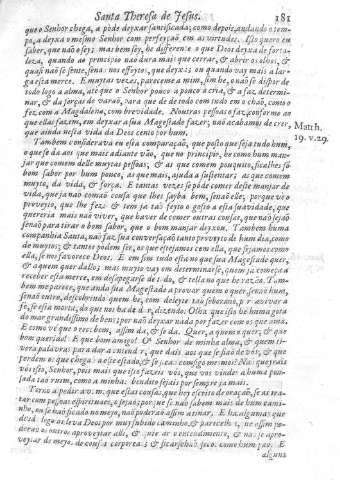 Santa Theresa de Jesus. 181
que o Senhor chega, a póde deyxar santificada; como depois, andando o tem-
po, a deyxa o mesmo Senhor com perfeyçaõ em as virtudes. Isto quero em
saber, que naõ o sey: mas bem sey, he differente o que Deos deyxa de forta-
leza, quando ao principio naõ dura mais que cerrar, & abrir os olhos, &
quasi naõ se sente, senaõ nos effeytos, que deyxa; ou quando vay mais a lar-
ga esta merce. E muytas vezes, pareceme a mim, se he, o naõ se dispor de
todo logo a alma, até que o Senhor pouco a pouco a cria, & a faz determi-
nar, & dá forças de varaõ, para que dê de todo com tudo em o chaõ, como o
fez com a Magdalena, com brevidade. Noutras pessoas o faz, conforme ao
que ellas fazem, em deyxar a sua Magestade fazer; naõ acabamos de crer,
que ainda nesta vida dá Deos cento por hum.
Matth.
19. v. 29.
Tambem considerava eu esta comparaçaõ, que posto que seja tudo hum,
o que se dá aos que mais adiante vaõ, que no principio, he como hum man-
jar que comem delle muytas pessoas, & as que comem pouquito, ficalhes só
bom sabor por hum pouco, as que mais, ajuda a sustentar; as que comem
muyto, dá vida, & força. E tantas vezes se póde comer deste manjar de
vida, que ja naõ comaõ cousa que lhes sayba bem, senaõ elle; porque vé o
proveyto, que lhe fez: & tem ja taõ feyto o gosto a esta suavidade, que
quereria mais naõ viver, que haver de comer outras cousas, que naõ sejaõ
senaõ para tirar o bom sabor, que o bom manjar deyxou. Tambem huma
companhia Santa, naõ faz sua conversaçaõ tanto proveyto de hum dia, como
de muytos; & tantos podem ser, os que estejamos com ella, que sejamos como
ella, se nos favorece Deos. E em fim tudo está no que sua Magestade quer,
& a quem quer dallo; mas muyto vay em determinarse, quem ja começa a
receber esta merce, em desapegarse de tudo, & tella no que he razaõ. Tam-
bem me parece, que anda sua Magestade a provar quem o quer, senaõ hum,
senaõ outro, descobrindo quem he, com deleyte taõ soberano, por avivar a
fé, se está morta, do que nos ha de dar, dizendo. Olha que isto he huma gota
do mar grandissimo de bens; por naõ deyxar nada por fazer com os que ama.
E como vé que o recebem, assim dá, & se dá. Quer, a quem o quer, & que
bom querido! E que bom amigo! O Senhor de minha alma, & quem ti-
vera palavras para dar a entender, que dais aos que se fiaõ de vós, & que
perdem os que chegaõ a este estado, & se ficaõ comsigo mesmos! Naõ queirais
vós isto, Senhor, pois mais que isto fazeis vós, que vos vindes a huma pou-
sada taõ ruim, como a minha: bendito sejais por sempre ja mais.
Torno a pedir a v. m. que estas cousas, que hey escrito de oraçaõ, se as tra-
tar com pessoas espirituaes, o sejaõ; porque se naõ sabem mais de hum cami-
nho, ou se haõ ficado no meyo, naõ poderaõ assim atinar. E ha algumas, que
desde logo as leva Deos por muy subido caminho, & parecelhes, que assim po-
deraõ os outros aproveytar alli, & quietar o entendimento, & naõ se apro-
veytar de meyos de cousas corporeas; & ficarsehaõ secos como hum pao. E
alguns